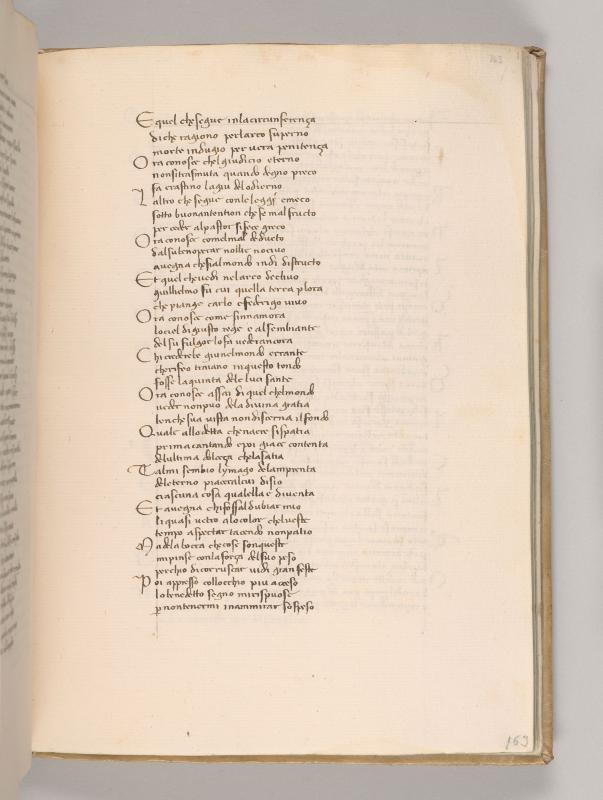 163
E quel che segue inla circunferença
di che ragiono per larco superno
morte indugio per uera penitença
O ra conosce chel giudicio eterno
non si trasmuta quando degno preco
fa crastino lagiu delodierno
L altro che segue conle leggi emeco
sotto buona intention che fe mal fructo
per ceder alpastor si fece greco
O ra conosce comel mal deducto
dal suo benoperar nolli e nociuo
auegna che sia lmondo indi distructo
E t quel che uedi nelarco decliuo
guilhielmo fu cui quella terra plora
che piange carlo e federigo uiuo
O ra conosce come sinnamora
lo ciel di giusto rege e alsembiante
del suo fulgor lo fa uedere ancora
C hi crederebe giu nelmondo errante
che rifeo troiano inquesto tondo
fosse la quinta dele luci sante
O ra conosce assai di quel chelmondo
ueder non puo dela diuina gratia
benche sua uista non discerna il fondo
Q uale allodetta che naere si spatia
prima cantando e poi giace contenta
delultima dolceça che la satia
T al mi sembio lymago delamprenta
deleterno piacer alcui disio
ciascuna cosa qualella e diuenta
E t auegna chi fossal dubiar mio
li quasi uetro alo color chel ueste
tempo aspectar tacendo non patio
M a dela bocca che cose son queste
mi pinse con la força delsuo peso
perchio di coruscar uidi gran feste
P oi appresso collocchio piu acceso
lo benedetto segno mi rispuose
p non tenermi in ammirar sospeso
163